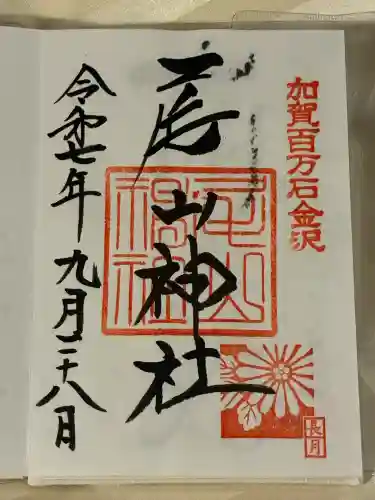 加賀百万石金沢
尾山神社
尾山神社
長月
令和七年九月二十八日